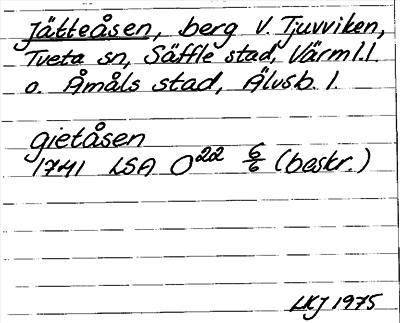 Jätteåsen, berg V. Tjuvviken,
Tveta sn, Säffle stad, Värml.l.
o. Åmåls stad, Älvsb. l.
gietåsen
1741 LSA O²² 6/6 (beskr.)
LKJ 1975